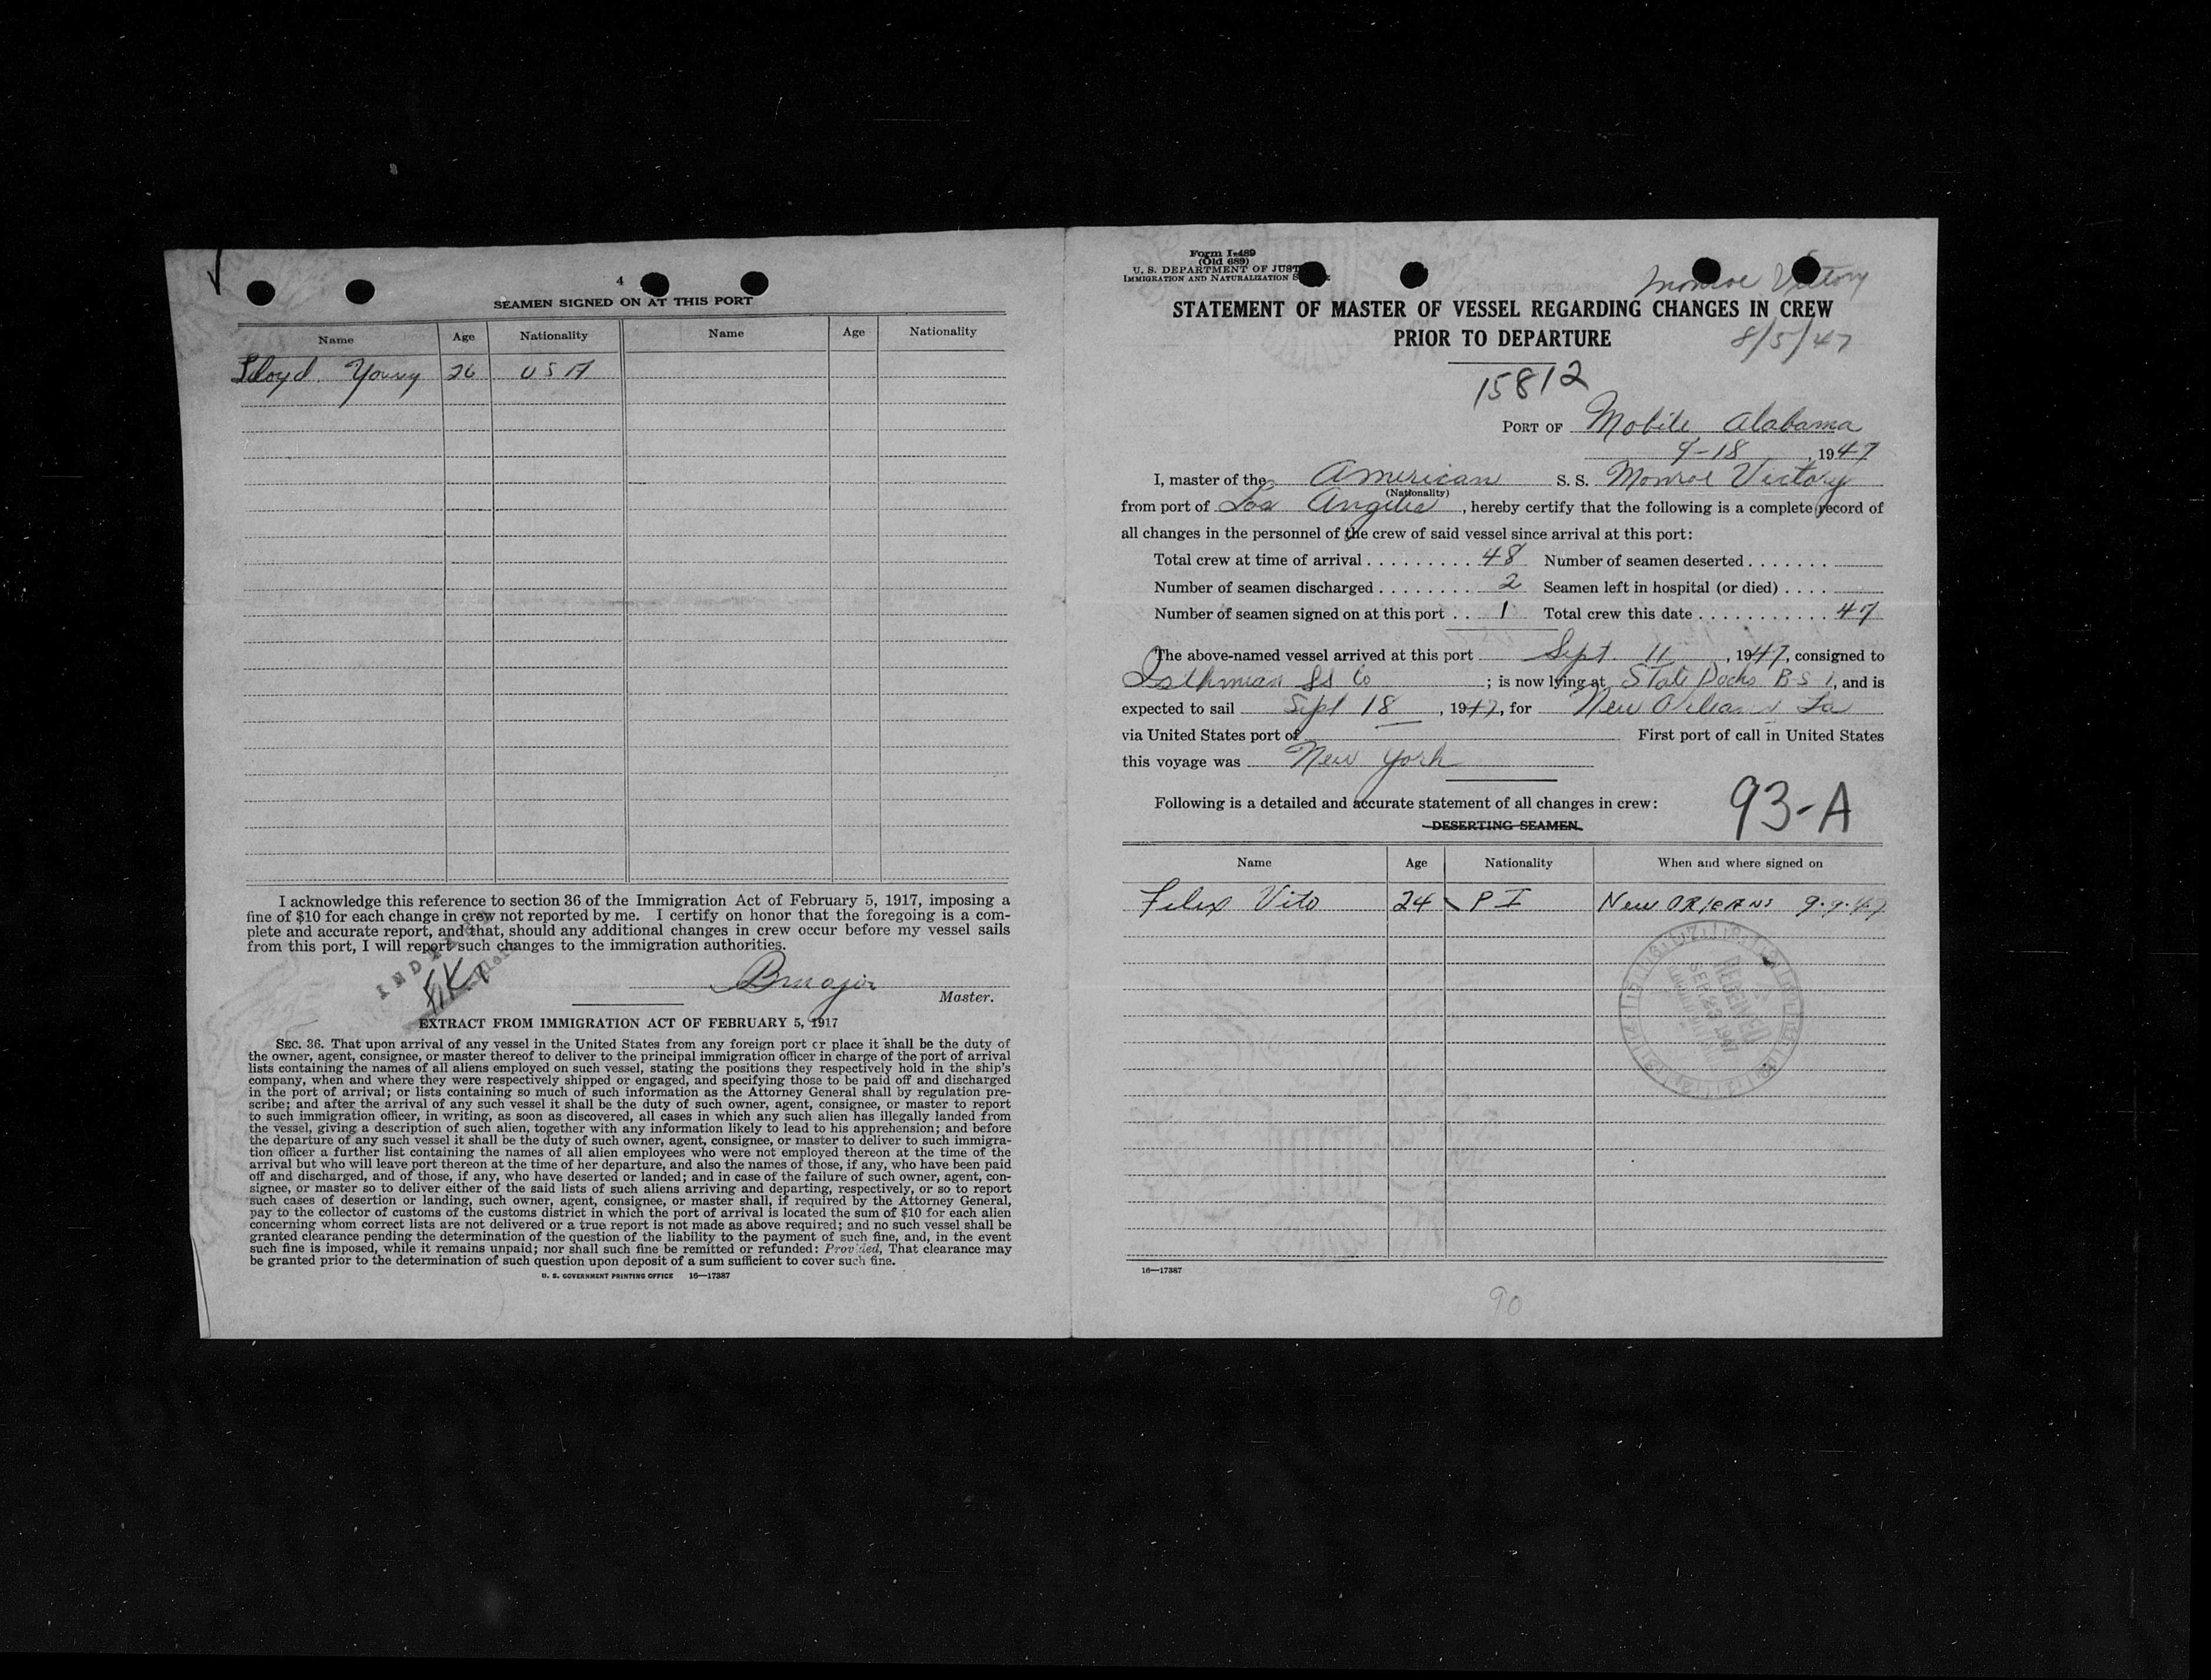 4
SEAMEN SIGNED ON AT THIS PORT
Name Age Nationality Name Age Nationality
Lloyd Young 26 USA
I acknowledge this reference to section 36 of the Immigration Act of February 5, 1917, imposing a
fine of $10 for each change in crew not reported by me. I certify on honor that the foregoing is a com-
plete and accurate report, and that, should any additional changes in crew occur before my vessel sails
from this port, I will report such changes to the immigration authorities.
Master.
EXTRACT FROM IMMIGRATION ACT OF FEBRUARY 5, 1917
SEC. 36. That upon arrival of any vessel in the United States from any foreign port or place it shall be the duty of
the owner, agent, consignee, or master thereof to deliver to the principal immigration officer in charge of the port of arrival
lists containing the names of all aliens employed on such vessel, stating the positions they respectively hold in the ship's
company, when and where they were respectively shipped or engaged, and specifying those to be paid off and discharged
in the port of arrival; or lists containing so much of such information as the Attorney General shall by regulation pre-
scribe; and after the arrival of any such vessel it shall be the duty of such owner, agent, consignee, or master to report
to such immigration officer, in writing, as soon as discovered, all cases in which any such alien has illegally landed from
the vessel, giving a description of such alien, together with any information likely to lead to his apprehension; and before
the departure of any such vessel it shall be the duty of such owner, agent, consignee, or master to deliver to such immigra-
tion officer a further list containing the names of all alien employees who were not employed thereon at the time of the
arrival but who will leave port thereon at the time of her departure, and also the names of those, if any, who have been paid
off and discharged, and of those, if any, who have deserted or landed; and in case of the failure of such owner, agent, con-
signee, or master so to deliver either of the said lists of such aliens arriving and departing, respectively, or so to report
such cases of desertion or landing, such owner, agent, consignee, or master shall, if required by the Attorney General,
pay to the collector of customs of the customs district in which the port of arrival is located the sum of $10 for each alien
concerning whom correct lists are not delivered or a true report is not made as above required; and no such vessel shall be
granted clearance pending the determination of the question of the liability to the payment of such fine, and, in the event
such fine is imposed, while it remains unpaid; nor shall such fine be remitted or refunded: Provided, That clearance may
be granted prior to the determination of such question upon deposit of a sum sufficient to cover such fine.
U. S. GOVERNMENT PRINTING OFFICE 16—17387
Form I-489
(Old 689)
U. S. DEPARTMENT OF JUST
IMMIGRATION AND NATURALIZATION S
Monroe Victory
STATEMENT OF MASTER OF VESSEL REGARDING CHANGES IN CREW
PRIOR TO DEPARTURE
8/5/47
15812
PORT OF Mobile Alabama
9-18, 1947
I, master of the American S. S. Monroe Victory
(Nationality)
from port of Los Angeles, hereby certify that the following is a complete record of
all changes in the personnel of the crew of said vessel since arrival at this port:
Total crew at time of arrival . . . . . . . . . 48 Number of seamen deserted . . . . . . .
Number of seamen discharged . . . . . . . . 2 Seamen left in hospital (or died) . . . .
Number of seamen signed on at this port . . 1 Total crew this date . . . . . . . . . . . 47
The above-named vessel arrived at this port Sept 11, 1947, consigned to
Isthmian SS Co; is now lying at State Docks B S 1, and is
expected to sail Sept 18, 1947, for New Orleans La
via United States port of First port of call in United States
this voyage was New York
Following is a detailed and accurate statement of all changes in crew:
93-A
DESERTING SEAMEN
Name Age Nationality When and where signed on
Felix Vito 24 P I New ORLEANS 9.9.47
RECEIVED
SEP 23 1947
16—17387
90